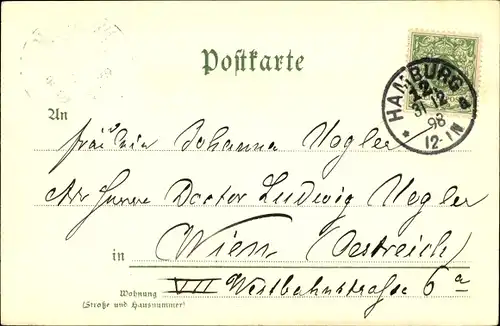 Postkarte
HAMBURG
12.
31 12
98
12-1N
An
Fräulein Johanna Vogler
Herrn Doctor Ludwig Vogler
in Wien (Oestreich)
Wohnung VII Westbahnstraße 6 a
(Straße und Hausnummer)